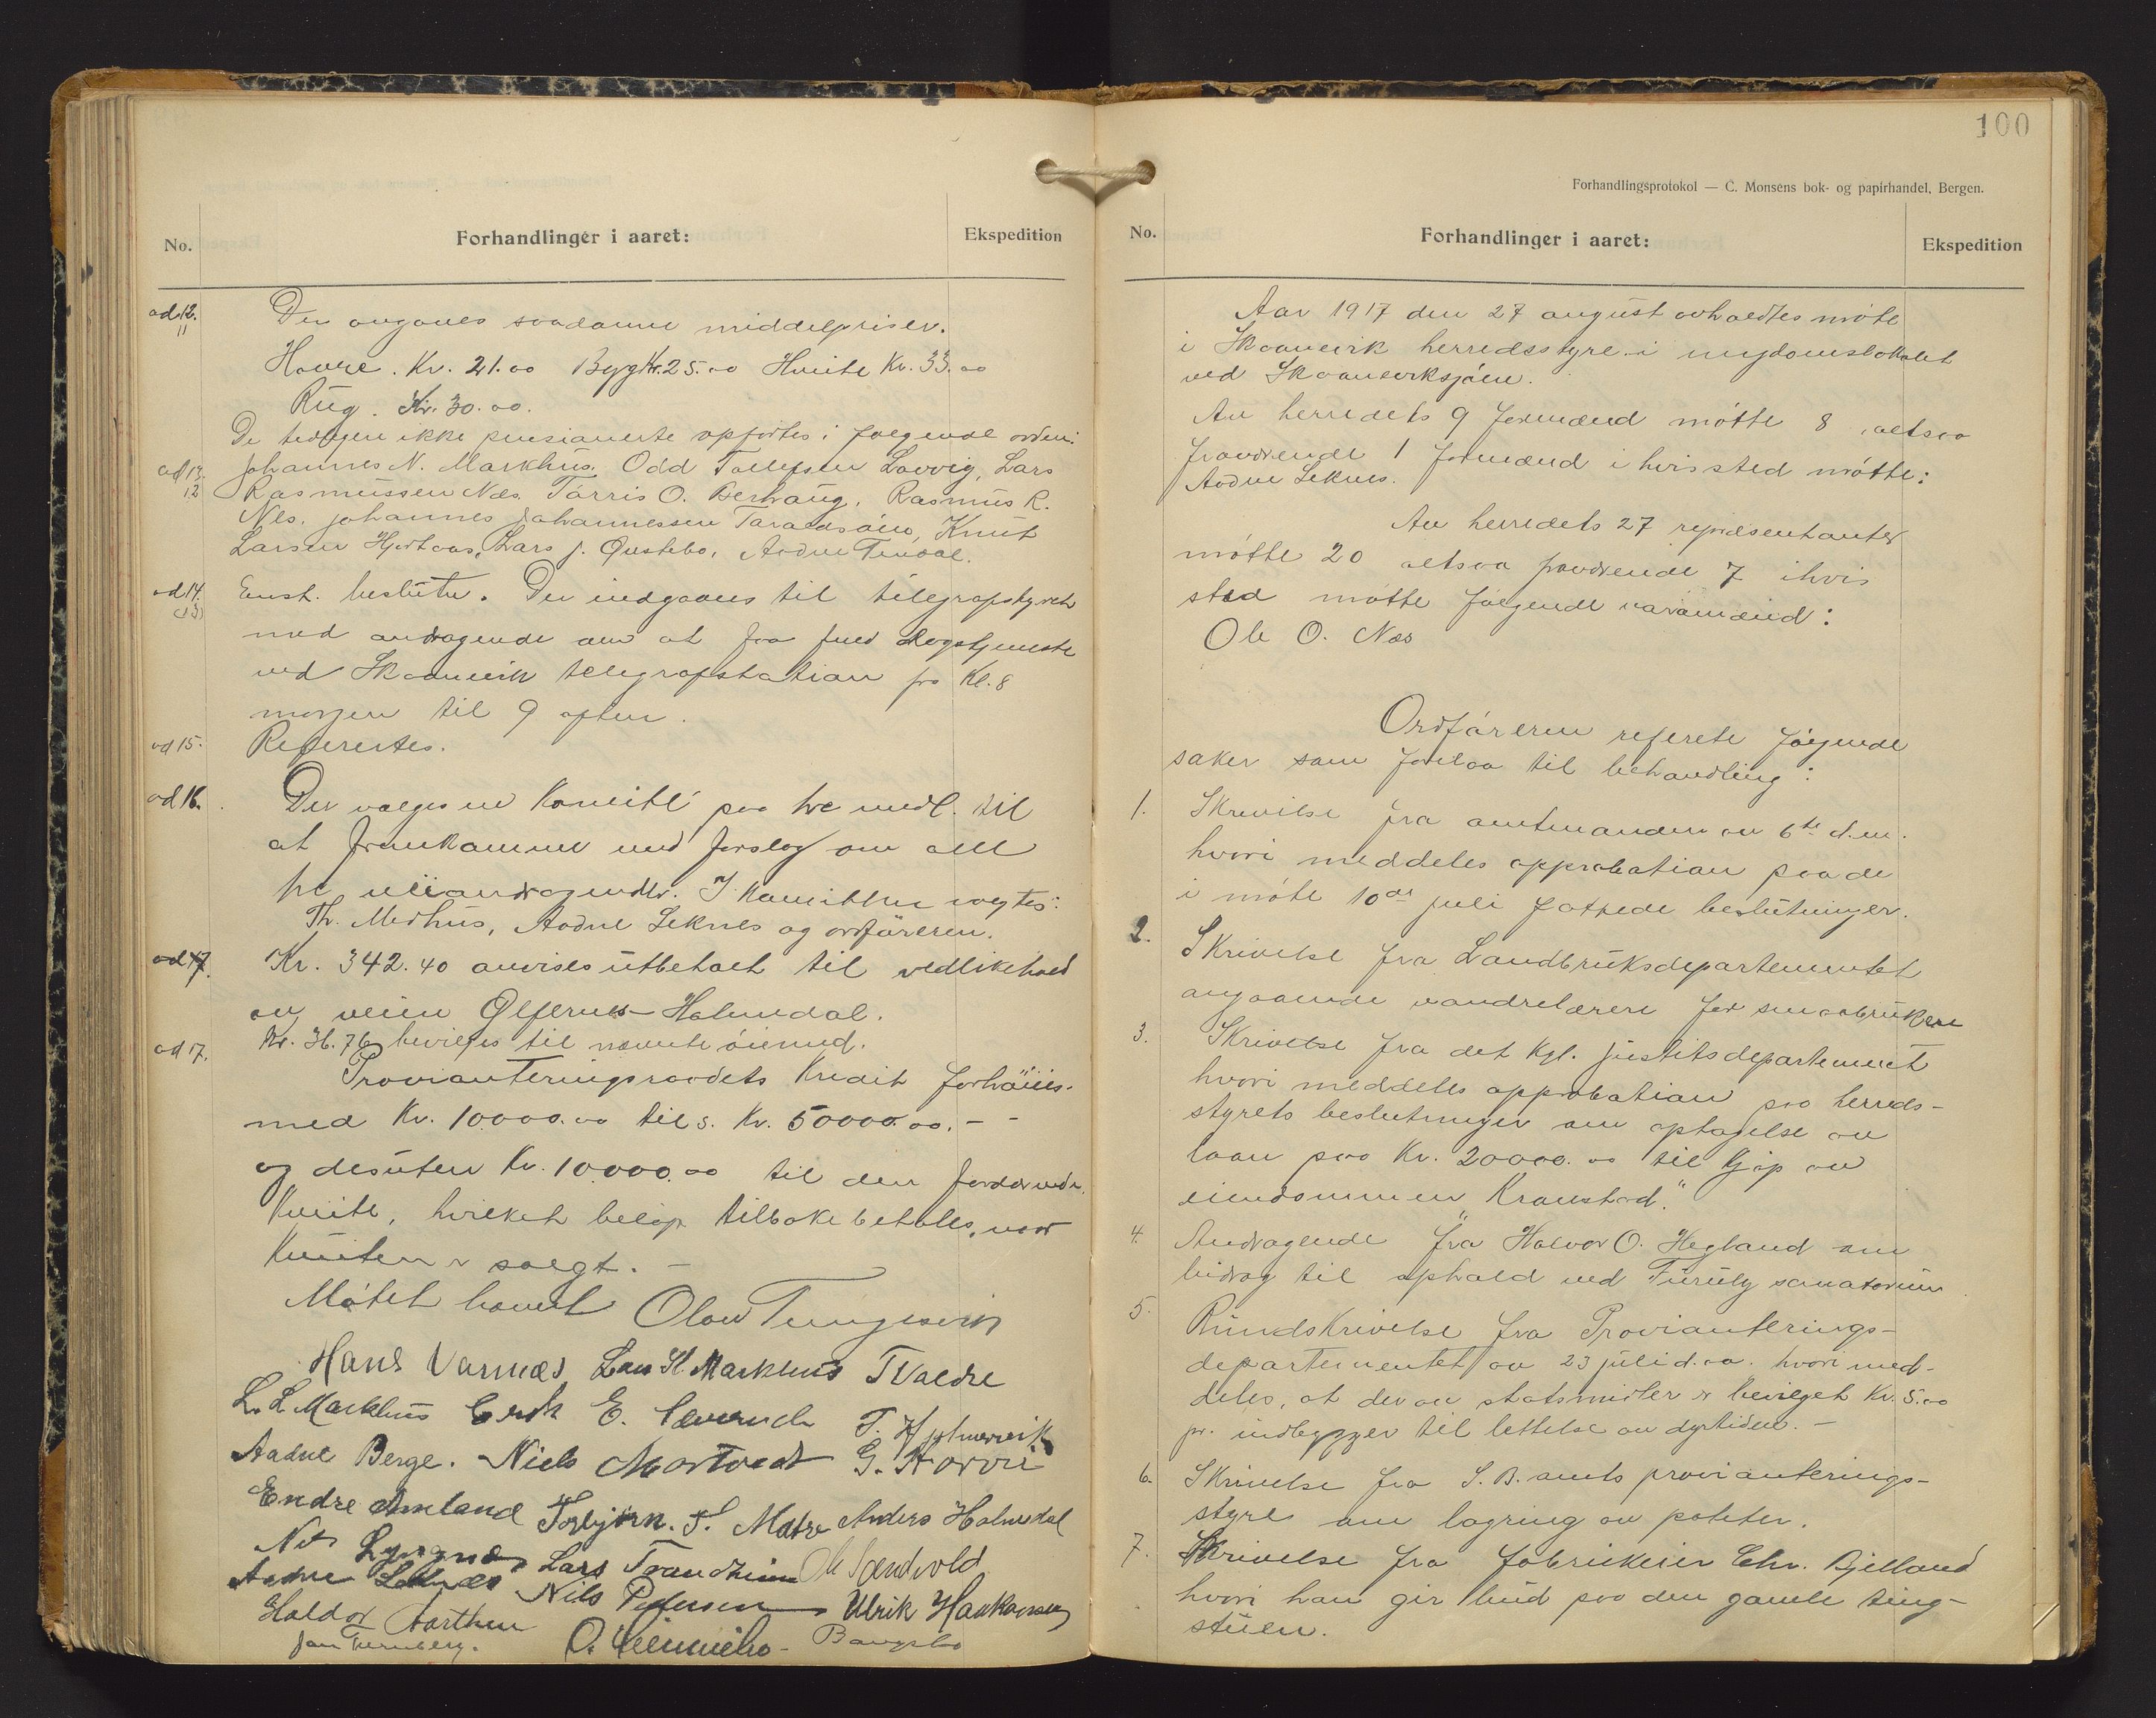 No.
Forhandlinger i aaret:
Ekspedition
ad 12.
11
Der angaves saadanne middelpriser.
Havre. Kr. 21.00 Byg Kr. 25.00 Hveite Kr. 33.00
Rug. Kr. 30.00.
De tidligere ikke pensionerte opførtes i følgende orden:
ad 13.
12
Johannes N. Markhus. Odd Tollefsen Lovvig, Lars
Rasmussen Næs. Tørris O. Berhaug. Rasmus R.
Næs. Johannes Johannessen Taraldsøien, Knut
Larsen Hjortaas, Lars J. Qvstebø, Aadne Tindal.
ad 14.
(13)
Enst. beslutn. Der indgaaes til telegrafstyret
med andragende om at faa fuld dagstjeneste
ved Skaanevik telegrafstation fra Kl. 8
morgen til 9 aften.
ad 15.
Refertes.
ad 16.
Der vælges en Komité paa tre medl. til
at fremkomme med forslag om alle
tre veiandragender. I Komitteen valgtes:
Th. Medhus, Aadne Leknes og ordføreren.
ad 17.
Kr. 342.40 anvises utbetalt til vedlikehold
av veien Ølfernes-Holmedal.
Kr. 36.76 bevilges til nævnte øiemed.
ad 17.
Provianteringsraadets Kredit forhøies
med Kr. 10000.00 til s. Kr. 50000.00. -
og desuten Kr. 10.000.00 til den
hveite, hvilket beløp tilbakebetales, naar
hveiten er solgt. -
Møtet hævet Olav Tungesvik
Hans Varnæs Lars H. Markhus T Valdre
L. L. Markhus Erik E. Tævrud T. Hjelmervik
Aadne Berge. Niels Mortvedt G. Horvei
Endre Amland Torbjørn. T. Matre Anders Holmedal
Nils Lyngnæs Lars Trandheim Ole Sandvold
Aadne Leknes Nils Pedersen Ulrik Haakonsen
Haldor Aarthun
O. Bangsbo
100
Forhandlingsprotokol — C. Monsens bok- og papirhandel, Bergen.
No.
Forhandlinger i aaret:
Ekspedition
Aar 1917 den 27 august avholdtes møte
i Skaanevik herredsstyre i ungdomslokalet
ved Skaaneviksjøen.
Av herredets 9 formænd møtte 8, altsaa
fraværende 1 formænd i hvis sted møtte:
Aadne Leknes.
Av herredets 27 repræsentanter
møtte 20 altsaa fraværende 7 i hvis
sted møtte følgende varamænd:
Ole O. Næs
Ordføreren referete følgende
saker som forelaa til behandling:
1. Skrivelse fra amtmanden av 6te d.m.
hvori meddeles approbation paa de
i møte 10de juli fattede beslutninger.
2. Skrivelse fra Landbruksdepartementet
angaaende vandrelærere for smaabrukere
3. Skrivelse fra det Kgl. justitsdepartement
hvori meddeles approbation paa herreds-
styrets beslutninger om optagelse av
laan paa Kr. 20000.00 til kjøp av
eiendommen "Kraustad."
4. Andragende fra Halvor O. Hegland om
bidrag til ophold ved Furuly sanatorium.
5. Rundskrivelse fra Provianterings-
departementet av 23 juli d.aa. hvori med-
deles, at der av statsmidler er bevilget Kr. 5.00
pr. indbygger til lettelse av dyrtiden. -
6. Skrivelse fra S. B. amts provianterings-
styre om lagring av poteter.
7. Skrivelse fra fabrikeier Chr. Bjelland
hvori han gir bud paa den gamle ting-
stuen.